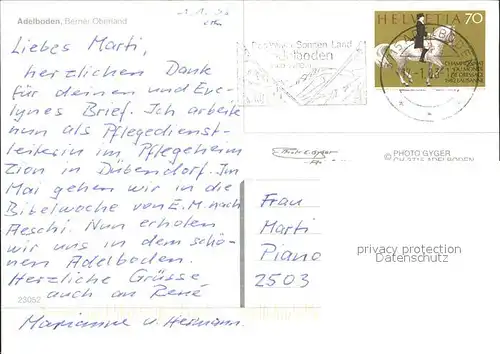 Adelboden, Berner Oberland
Liebes Marti,
herzlichen Dank
für deinen und Eve-
lynes Brief. Ich arbeite
nun als Pflegedienst-
leiterin im Pflegeheim
Zion in Dübendorf. Im
Mai gehen wir in die
Bibelwoche von E.M. nach
Aeschi. Nun erholen
wir uns in dem schö-
nen Adelboden.
Herzliche Grüsse
auch an René
23052
Marianne u. Hermann.
HELVETIA 70
© PHOTO GYGER
CH 3715 ADELBODEN
Frau
Marti
Piano
2503
privacy protection
Datenschutz